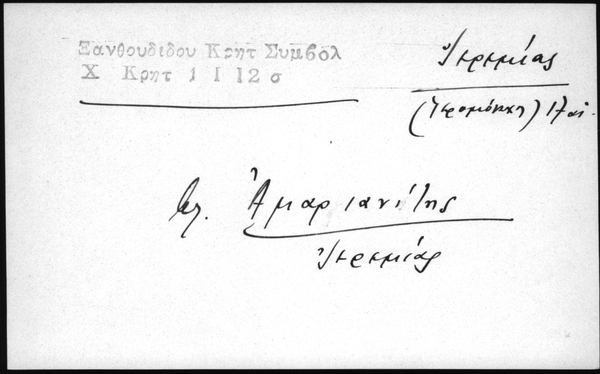 Ξανθουδιδου Κρητ Συμβολ
Χ Κρητ 1 1 12σ
Ἱερεμίας
(Ἱερομόναχ) 17 αἰ.
βλ. Ἀμαριανίτης
Ἱερεμίας